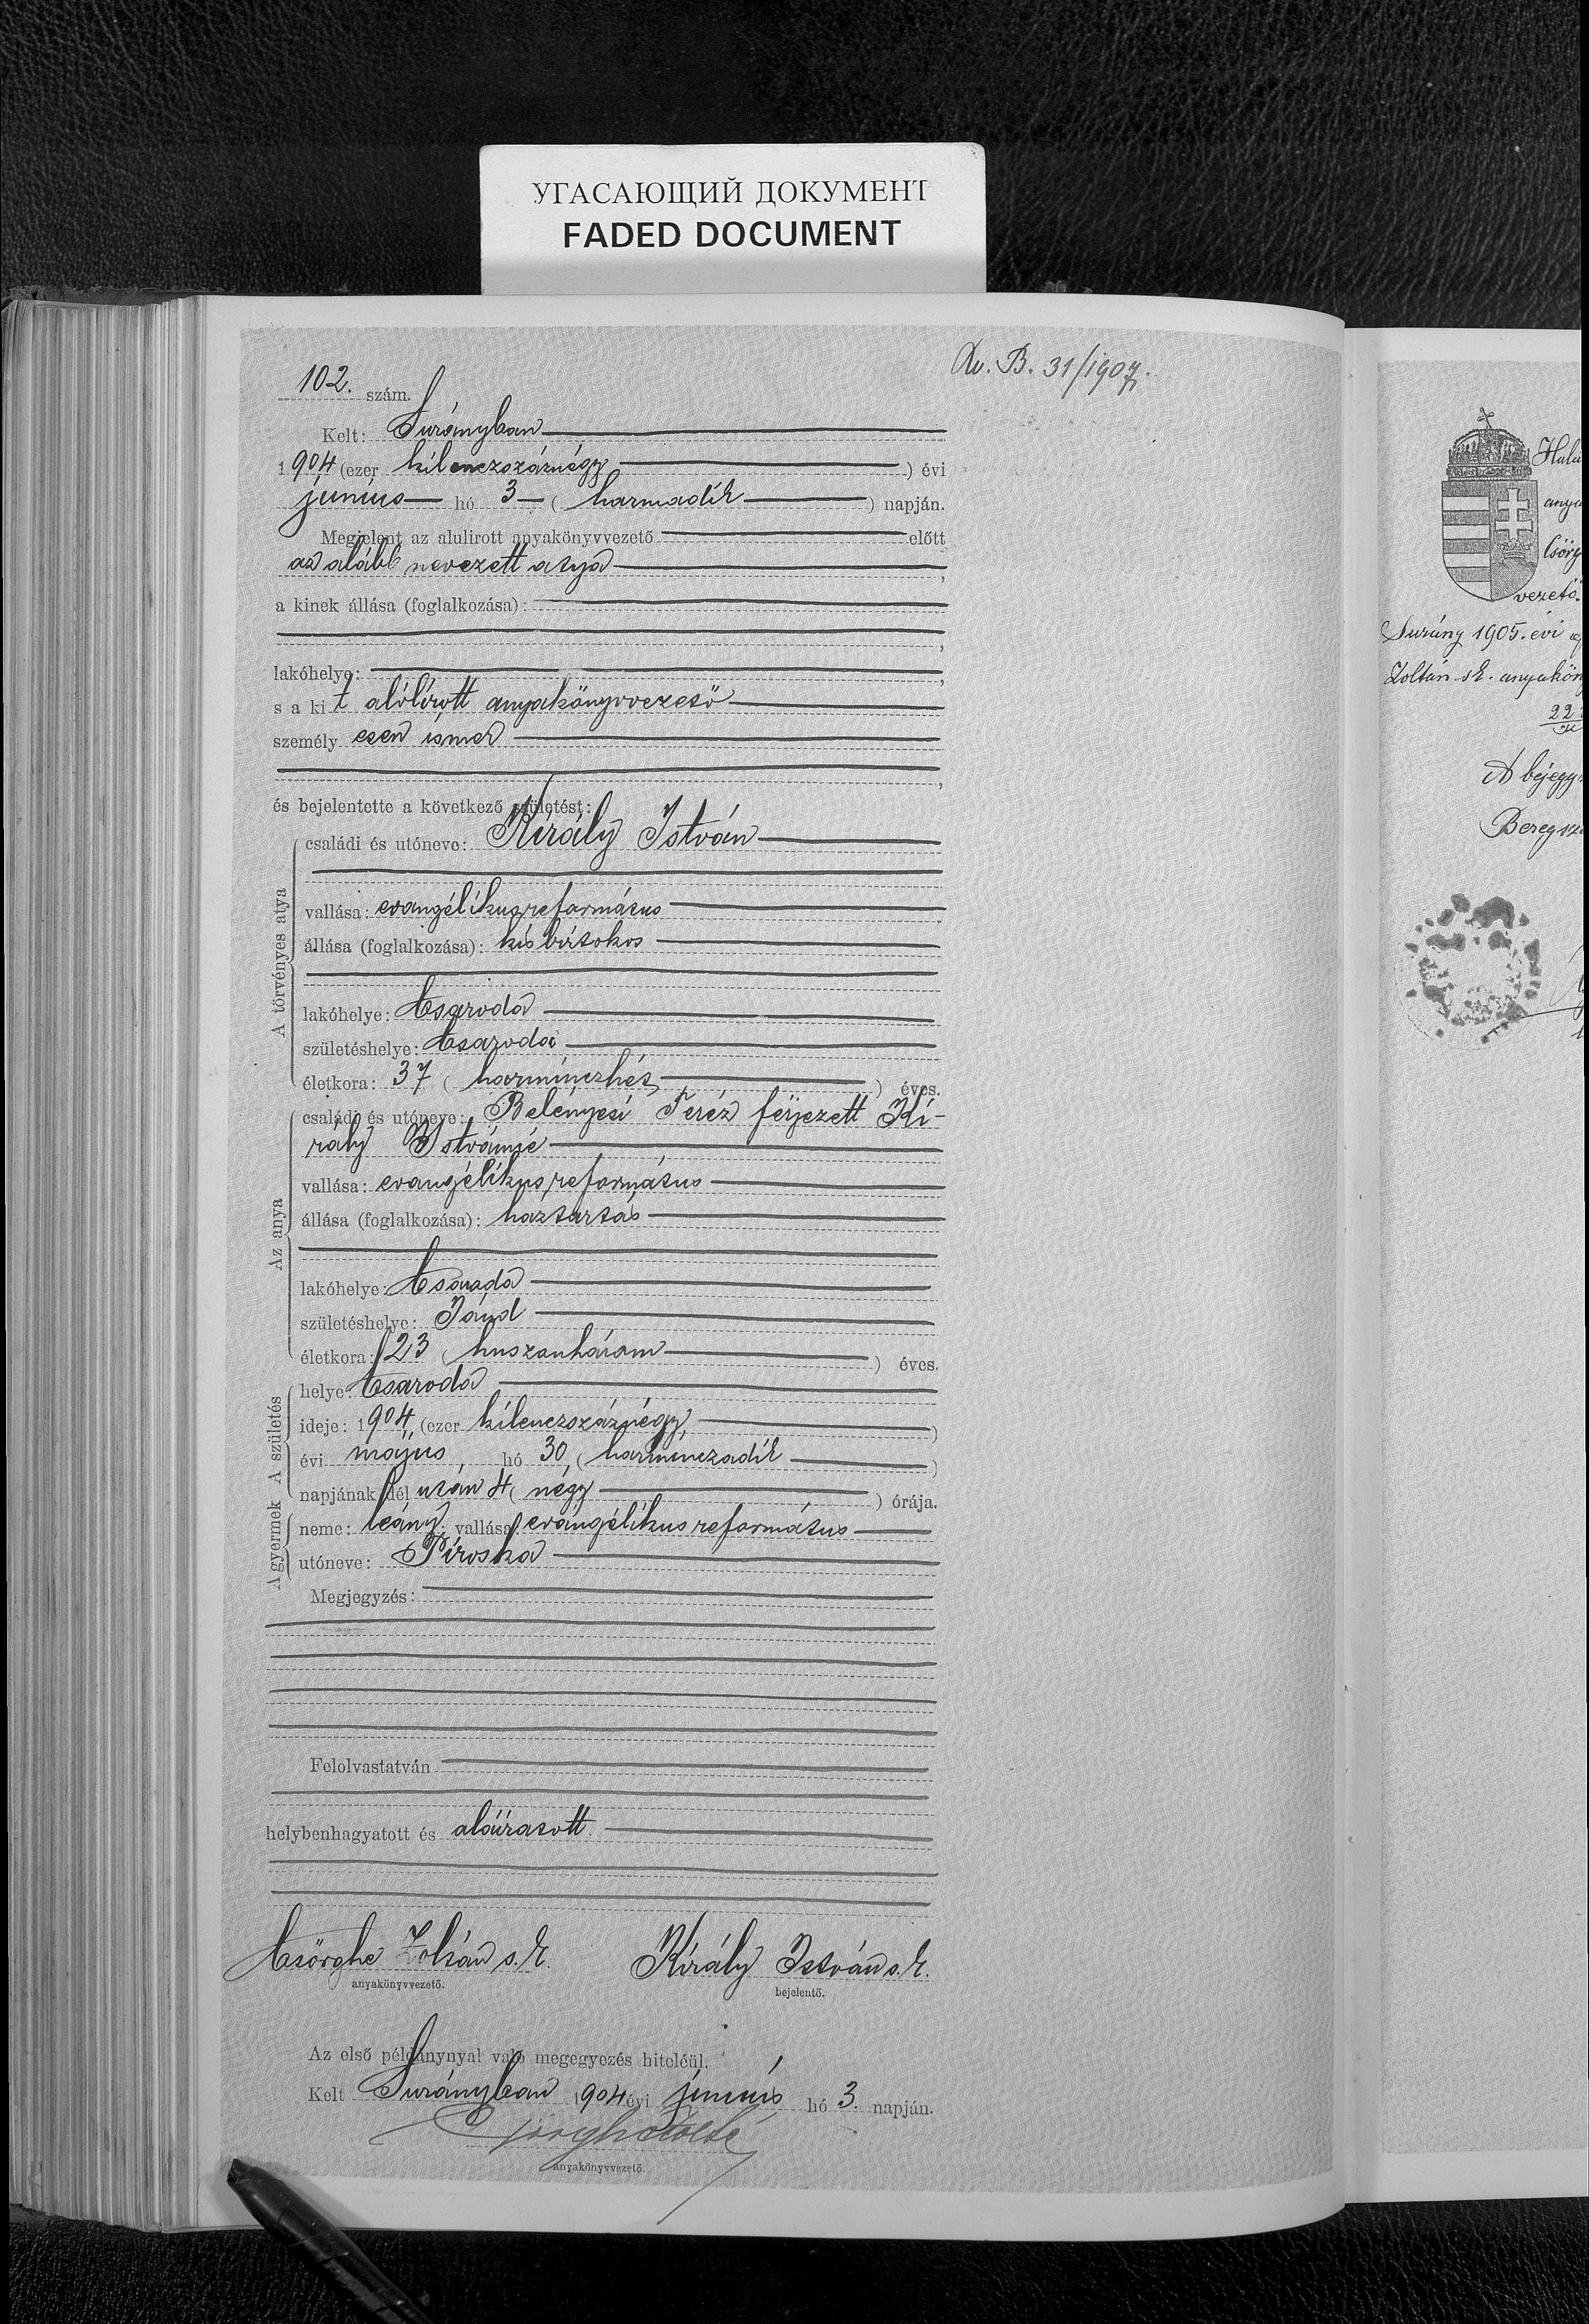 УГАСАЮЩИЙ ДОКУМЕНТ
FADED DOCUMENT
102. szám.
Av. B. 31/1907.
Kelt: Surányban
1904 (ezer kilenczszáznégy ) évi
június hó 3 ( harmadik ) napján.
Megjelent az alulirott anyakönyvvezető előtt
az alább nevezett atya ,
a kinek állása (foglalkozása):
,
lakóhelye: ,
s a kit alólírott anyakönyvvezető
személy esen ismer
,
és bejelentette a következő születést:
A törvényes atya
családi és utóneve: Király István
vallása: evangélikusreformátus
állása (foglalkozása): kisbirtokos
lakóhelye: Csaroda
születéshelye: Csaroda
életkora: 37 ( harminczhét ) éves.
Az anya
családi és utóneve: Belényesi Teréz férjezett Ki-
rály Istvánné
vallása: evangélikusreformátus
állása (foglalkozása): háztartás
lakóhelye: Csaroda
születéshelye: Jánd
életkora: 23 ( huszonhárom ) éves.
A születés
helye: Csaroda
ideje: 1904 (ezer kilenczszáznégy )
évi május hó 30 ( harminczadik )
napjának dél után 4 ( négy ) órája.
A gyermek
neme: leány; vallása: evangélikusreformátus
utóneve: Piroska
Megjegyzés:
Felolvastatván
helybenhagyatott és aláíratott.
Csörghe Zoltán s. k.
anyakönyvvezető.
Király István s. k.
bejelentő.
Az első példánynyal való megegyezés hiteléül.
Kelt Surányban 1904 évi június hó 3. napján.
Csörghe Zoltán
anyakönyvvezető.
vezető.
Surány 1905. évi
Zoltán sk. anyakön
A bejegy
Beregsz